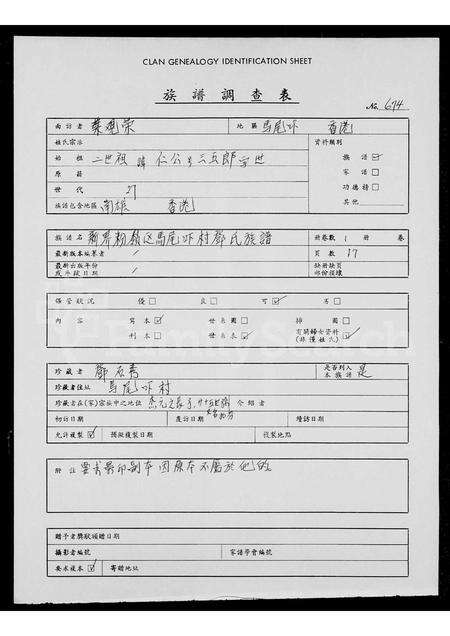 CLAN GENEALOGY IDENTIFICATION SHEET
族譜調查表
No. 674
面訪者 葉樹榮 地區 馬尾吓 香港
姓氏宗派 資料類別
始祖 二世祖 諱 仁公 三五郎 族譜 ☑
原籍 家譜 □
世代 27 功德榜 □
族譜包含地區 南雄 香港 其他
族譜名 新界粉嶺區馬尾吓村鄧氏族譜 冊卷數 1 冊 卷
最新版本編纂者 / 頁數 17
最新出版年份或手錄日期 / 缺冊缺頁部份復壞
保管狀況 優 □ 良 □ 可 ☑ 劣 □
內容 寫本 ☑ 世系圖 □ 排圖 □
刊本 □ 世系表 ☑ 有關婦女資料 (非僅姓氏) ☑
珍藏者 鄧 青 是否列入本族譜 是
珍藏者住址 馬尾吓村
珍藏者在(家)宗族中之地位 介紹者
初訪日期 覆訪日期 續訪日期
允許複製 ☑ 擬複製日期 複製地點
附註 要求影印副本因原本不屬於他的
贈予者獎狀頒贈日期
攝影者編號 家譜學會編號
要求複本 ☑ 寄贈地址
FamilySearch